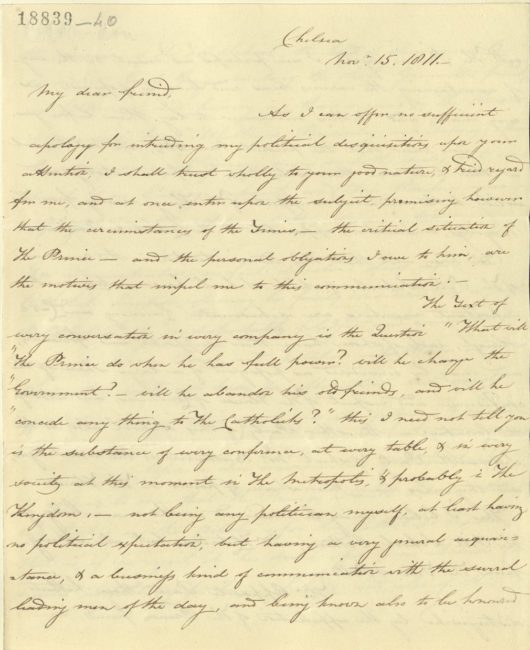 18839-40
Chelsea
Novr. 15. 1811.—
My dear friend,
As I can offer no sufficient
apology for intruding my political disquisitions upon your
attention, I shall trust wholly to your good nature, & kind regard
for me, and at once, enter upon the subject, promising however
that the circumstances of the Times,— the critical situation of
the Prince — and the personal obligations I owe to him, are
the motives that impel me to this communication:—
The Text of
every conversation in every company is the Question "What will
"the Prince do when he has full power? will he change the
"Government?— will he abandon his old friends, and will he
"concede any thing to the Catholicks?" this I need not tell you
is the substance of every conference, at every table, & in every
society at this moment in the Metropolis, & probably in the
Kingdom;— not being any politician myself, at least having
no political expectation, but having a very general acquain=
=tance, & a business kind of communication with the several
leading men of the day, and being known also to be honoured